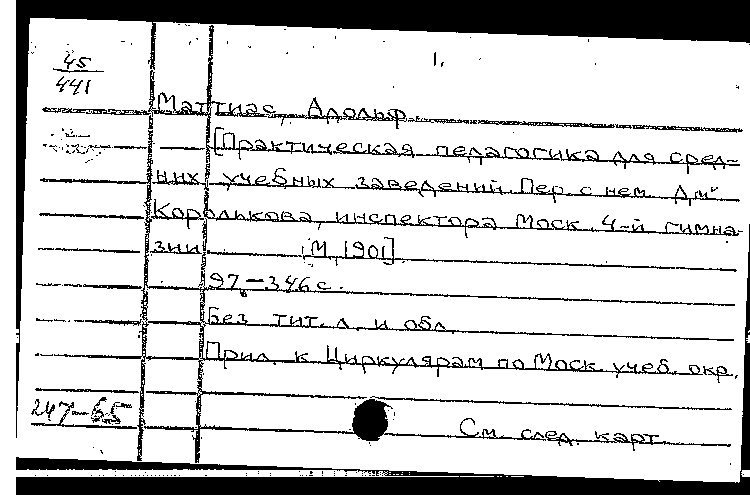 45
441
1.
Маттиас, Адольф.
[Практическая педагогика для сред-
них учебных заведений. Пер. с нем. Дм.
Королькова, инспектора Моск. 4-й гимна-
зии. [М, 1901].
97-346 с.
Без тит. л. и обл.
Прил. к Циркулярам по Моск. учеб. окр.
247-65
См. след. карт.